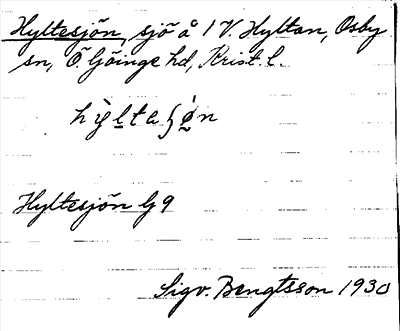 Hyltesjön, sjö å 1 V. Hyltan, Osby
sn, Ö. Göinge hd, Krist. l.
Hyltesjön G 9
Sigv. Bengtsson 1930